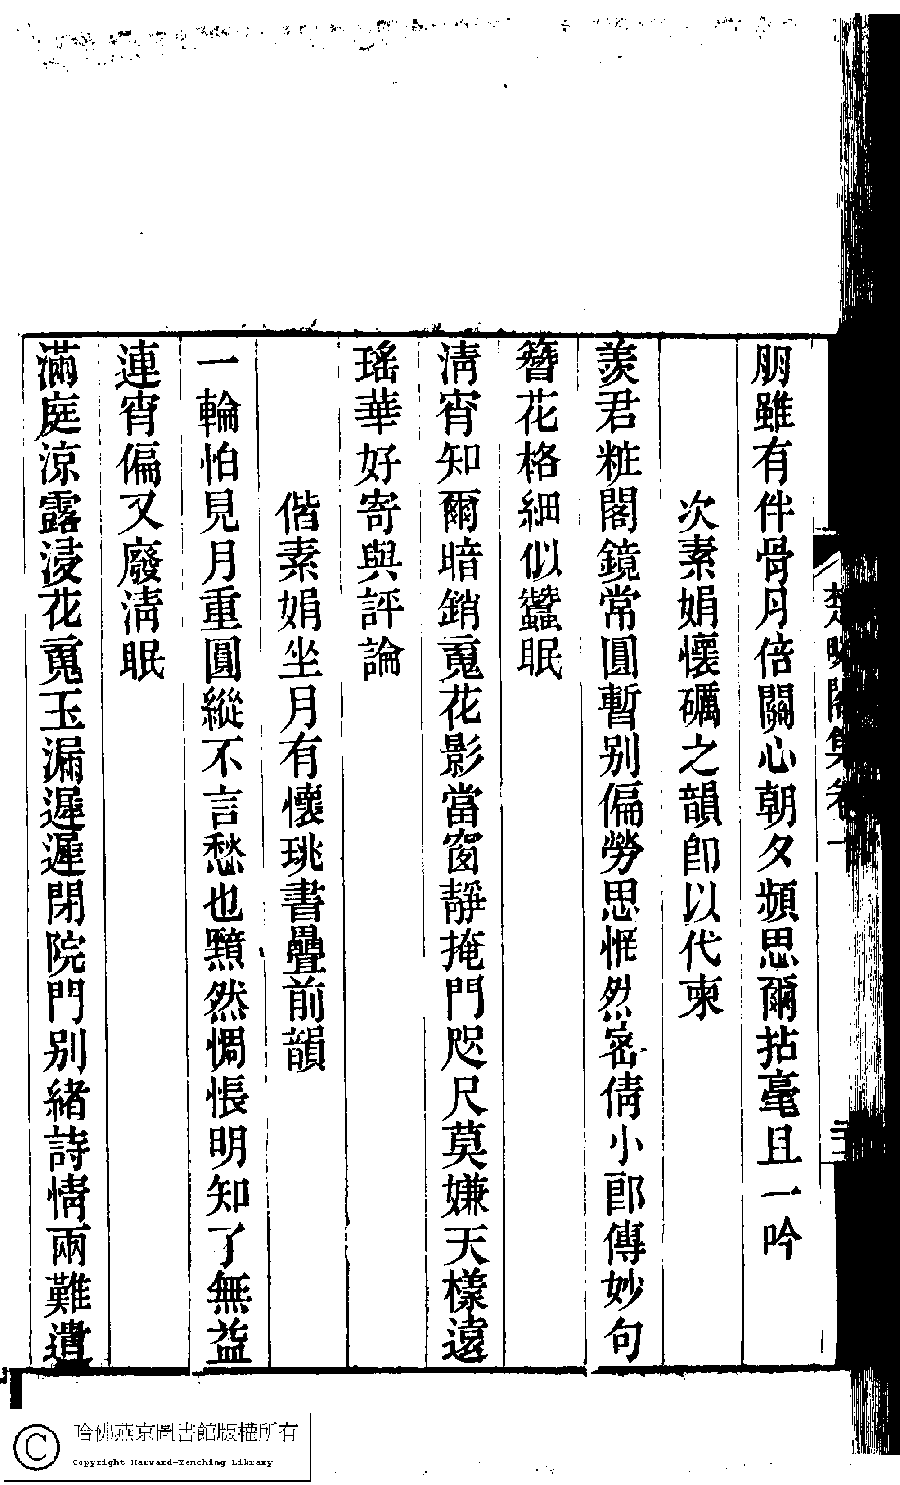 朋雖有伴骨月倍關心朝夕頻思爾拈毫且一吟
次素娟懷礪之韻卽以代柬
羨君粧閣鏡常圓暫别偏勞思惘然密倩小郎傳妙句
簪花格細似蠶眠
淸宵知爾暗銷䰟花影當窗靜掩門咫尺莫嫌天樣遠
瑤華好寄與評論
偕素娟坐月有懷珧書疊前韻
一輪怕見月重圓縱不言愁也黯然惆悵明知了無益
連宵偏又廢淸眠
滿庭涼露浸花䰟玉漏遲遲閉院門别緒詩情兩難遣
哈佛燕京圖書館版權所有
Copyright Harvard-Yenching Library